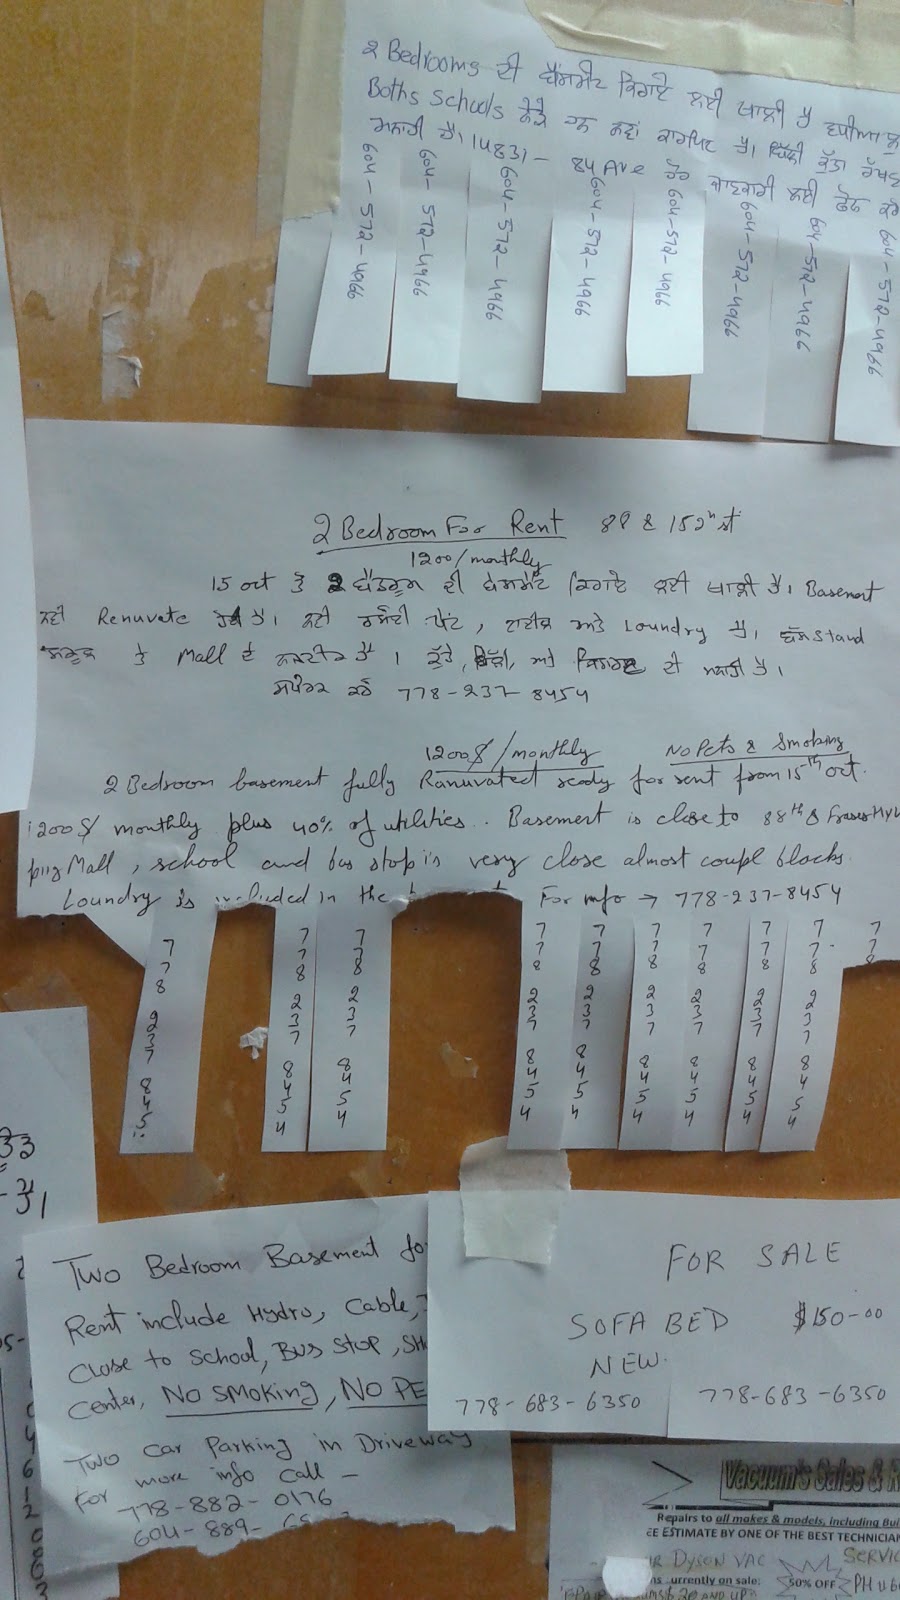 2 Bedrooms ਦੀ ਬੇਸਮੈਂਟ ਕਿਰਾਏ ਲਈ ਖਾਲੀ ਹੈ
Boths Schools ਨੇੜੇ ਹਨ ਹੈ। ਬਿੱਲੀ ਕੁੱਤਾ ਰੱਖਣ
ਮਨਾਹੀ ਹੈ। 14831 - 84 Ave ਹੋਰ ਜਾਣਕਾਰੀ ਲਈ ਫੋਨ ਕਰੋ
604-572-4966
604-572-4966
604-572-4966
604-572-4966
604-572-4966
604-572-4966
604-572-4966
604-572-4966
2 Bedroom For Rent 88 & 152ⁿ st
1200/monthly
15 oct ਤੋਂ 2 ਬੈਡਰੂਮ ਦੀ ਬੇਸਮੈਂਟ ਕਿਰਾਏ ਲਈ ਖਾਲੀ ਹੈ। Basement
ਨਵੀਂ Renuvate ਹੈ। ਨਵੀਂ ਪੇਂਟ, ਅਤੇ Loundry ਹੈ। ਬੱਸ Stand
ਸਕੂਲ ਤੇ Mall ਦੇ ਨਜ਼ਦੀਕ ਹੈ। ਕੁੱਤੇ, ਬਿੱਲੀ, ਅਤੇ ਦੀ ਮਨਾਹੀ ਹੈ।
ਸੰਪਰਕ ਕਰੋ 778-237-8454
1200$/monthly No Pets & Smoking
2 Bedroom basement fully Ranuvated ready for rent from 15th oct.
1200$ monthly plus 40% of utilities.. Basement is close to 88th & Fraser Hyw
ping Mall, school and bus stop is very close almost coupl blocks.
Loundry is included in the For info → 778-237-8454
778 237 845
778 237 8454
778 237 8454
778 237 8454
778 237 8454
778 237 8454
778 237 8454
778 237 8454
778 237 8454
778
Two Bedroom Basement fo
Rent include Hydro, Cable,
Close to School, Bus Stop, SH
Center, No Smoking, No PE
Two Car Parking in Driveway
For more info call -
778-882-0176
604-889-
FOR SALE
SOFA BED $150-00
NEW.
778-683-6350 778-683-6350
Vacuum's Sales & R
Repairs to all makes & models, including Bui
EE ESTIMATE BY ONE OF THE BEST TECHNICIAN
Dyson VAC SERVIC
urrently on sale: 50% OFF PH